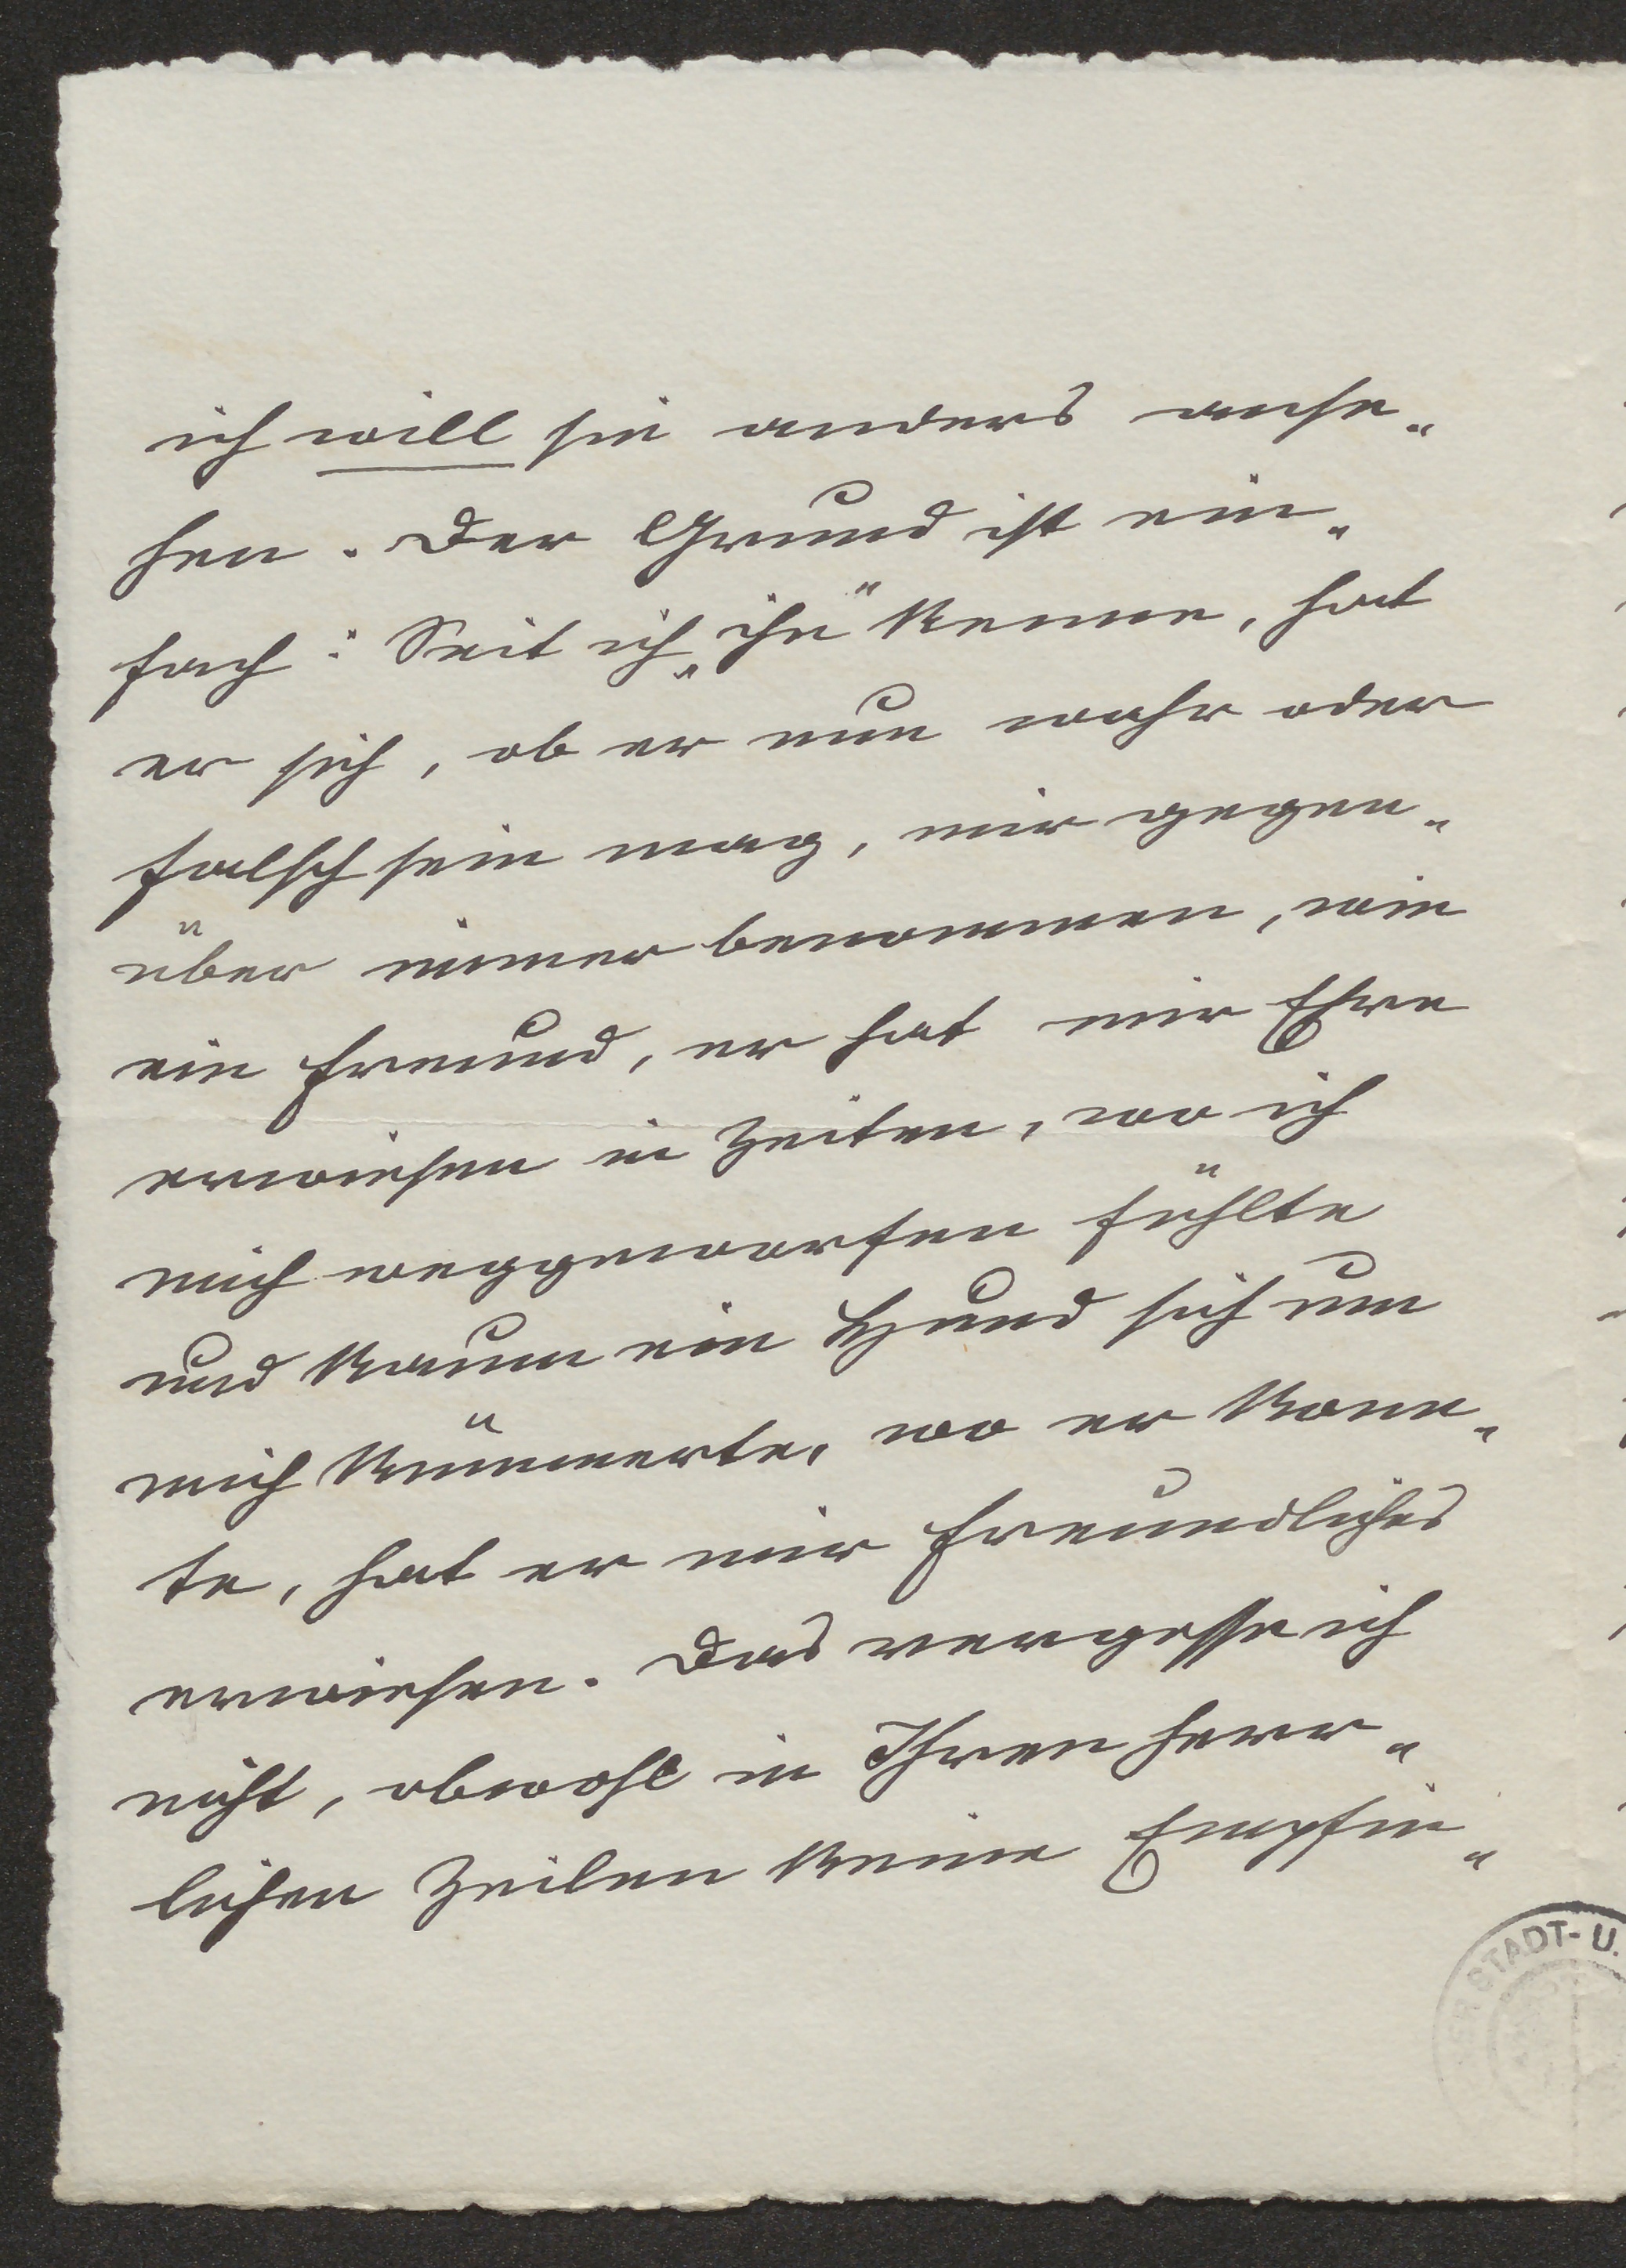 ich will sie anders anse„
hen. Der Grund ist ein„
fach: Seit ich „ihn“ kenne, hat
er sich, ob er nun wahr oder
falsch sein mag, mir gegen„
über immer benommen, wie
ein Freund, er hat mir Ehre
erwiesen in Zeiten, wo ich
mich weggeworfen fühlte
und kaum ein Hund sich um
mich kümmerte, wo er konn„
te, hat er mir Freundliches
erwiesen. Das vergesse ich
nicht, obwohl in Ihren herr„
lichen Zeilen keine Empfin„
STADT- U.